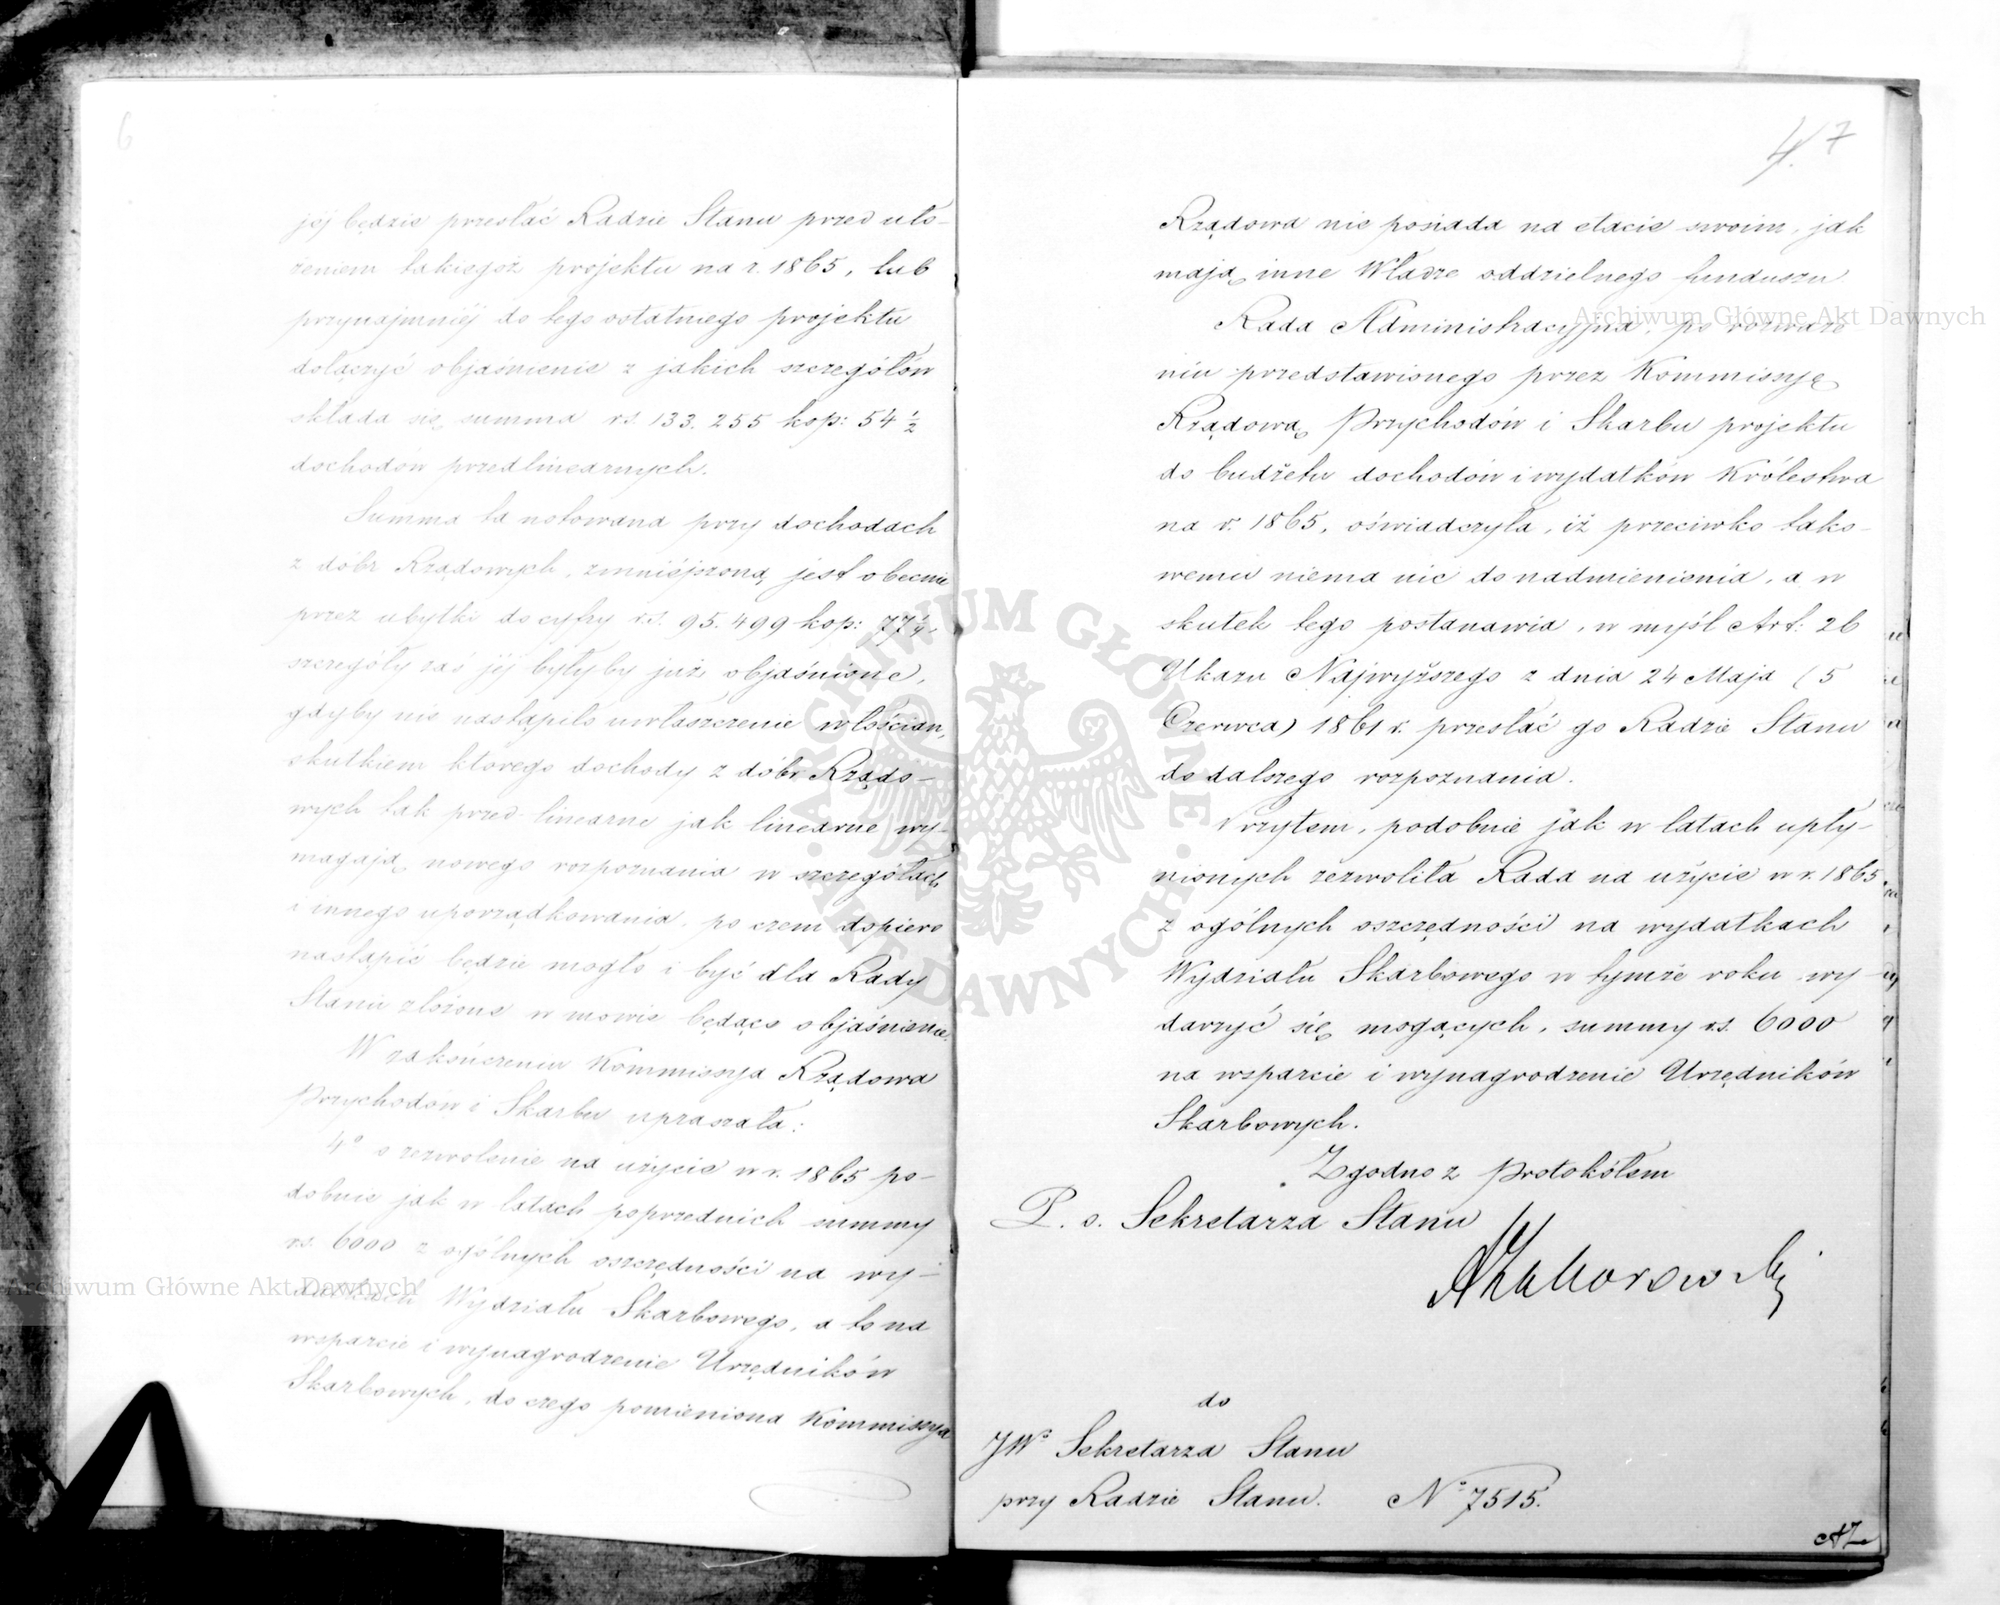 6
jéj będzie przesłać Radzie Stanu przed uło-
żeniem takiegoż projektu na r. 1865, lub
przynajmniéj do tego ostatniego projektu
dołączyć objaśnienie z jakich szczegółów
składa się summa rs. 133.255 kop: 54 1/2
dochodów przedlinearnych.
Summa ta notowana przy dochodach
z dóbr Rządowych, zmniéjszoną jest obecnie
przez ubytki do cyfry rs. 95.499 kop: 77 1/4,
szczegóły zaś jéj byłyby już objaśnione,
gdyby nie nastąpiło uwłaszczenie włościan,
skutkiem ktorego dochody z dóbr Rządo-
wych tak przed-linearne jak linearne wy-
magają nowego rozpoznania w szczegółach
i innego uporządkowania, po czem dopiero
nastąpić będzie mogło i być dla Rady
Stanu złożone w mowie będące objaśnienie.
W zakończeniu Kommissya Rządowa
Przychodów i Skarbu upraszała:
4° o zezwolenie na użycie w r. 1865 po-
dobnie jak w latach poprzednich summy
rs. 6000 z ogólnych oszczędności na wy-
datkach Wydziału Skarbowego, a to na
wsparcie i wynagrodzenie Urzędników
Skarbowych, do czego pomieniona Kommissya
4. 7
Rządowa nie posiada na etacie swoim, jak
mają inne Władze oddzielnego funduszu
Rada Administracyjna, po rozważe
niu przedstawionego przez Kommissyę
Rządową Przychodów i Skarbu projektu
do budżetu dochodów i wydatków Królestwa
na r. 1865, oświadczyła, iż przeciwko tako-
wemu niema nic do nadmienienia, a w
skutek tego postanawia, w myśl Art: 26
Ukazu Najwyższego z dnia 24 Maja (5
Czerwca) 1861 r. przesłać go Radzie Stanu
do dalszego rozpoznania.
Przytem, podobnie jak w latach upły-
nionych zezwoliła Rada na użycie w r. 1865
z ogólnych oszczędności na wydatkach
Wydziału Skarbowego w tymże roku wy-
darzyć się mogących, summy rs. 6000
na wsparcie i wynagrodzenie Urzędników
Skarbowych.
Zgodno z Protokółem
P. o. Sekretarza Stanu
do
JWo Sekretarza Stanu
przy Radzie Stanu. No 7515.
AZ
Archiwum Główne Akt Dawnych
Archiwum Główne Akt Dawnych
ARCHIWUM GŁÓWNE · AKT DAWNYCH ·